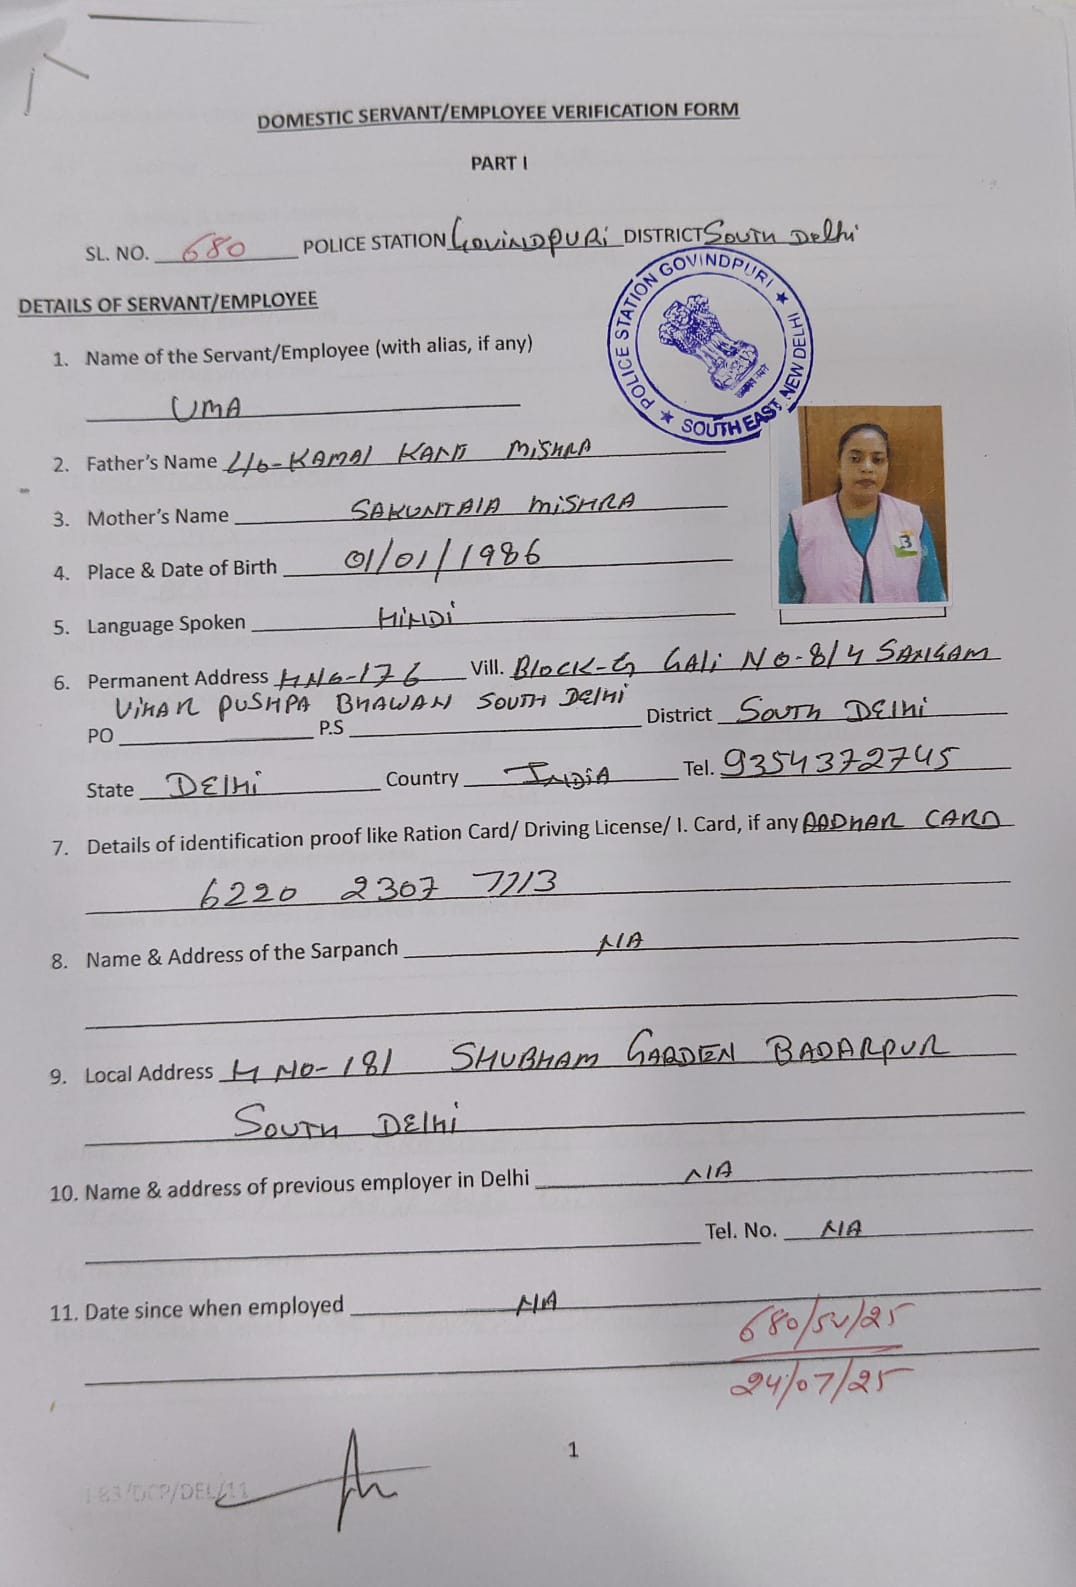 DOMESTIC SERVANT/EMPLOYEE VERIFICATION FORM
PART I
SL. NO. 680 POLICE STATION GOVINDPURI DISTRICT SOUTH DELHI
POLICE STATION GOVINDPURI ★ SOUTH EAST NEW DELHI ★
DETAILS OF SERVANT/EMPLOYEE
1. Name of the Servant/Employee (with alias, if any)
UMA
2. Father's Name KAMAL MISHRA
3. Mother's Name SAKUNTALA MISHRA
4. Place & Date of Birth 01/01/1986
5. Language Spoken HINDI
3
6. Permanent Address H NO-176 Vill. BLOCK-G GALI NO-8/4 SANGAM
VIHAR PUSHPA BHAWAN SOUTH DELHI
PO P.S District SOUTH DELHI
State DELHI Country INDIA Tel. 9354372745
7. Details of identification proof like Ration Card/ Driving License/ I. Card, if any AADHAR CARD
6220 2307
8. Name & Address of the Sarpanch N/A
9. Local Address H NO-181 SHUBHAM GARDEN BADARPUR
SOUTH DELHI
10. Name & address of previous employer in Delhi N/A
Tel. No. N/A
11. Date since when employed N/A
24/07/25
1